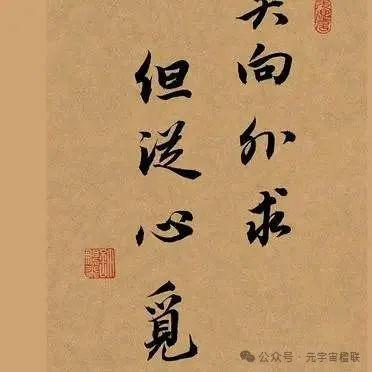 莫向外求
但从心觅
公众号·元宇宙楹联